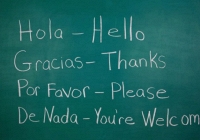 Hola - Hello
Gracias - Thanks
Por Favor - Please
De Nada - You're Welcom